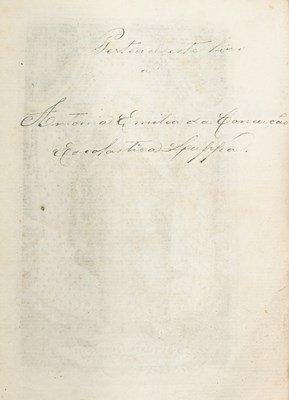 Pertence este livro
a
Antonia Emilia da Conceição
Escolastica Spappá.